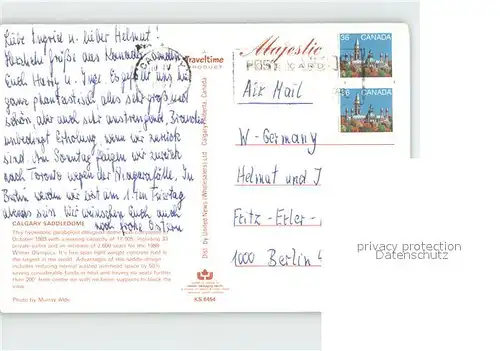 Liebe Ingrid u. lieber Helmut!
Herzliche Grüße aus Kanada senden
Euch Harry u. Inge. Es gefällt uns hier
ganz phantastisch, alles sehr groß und
schön, aber auch sehr anstrengend. Brauchen
unbedingt Erholung, wenn wir zurück
sind. Am Sonntag fliegen wir zurück
nach Toronto wegen der Niagarafälle. In
Berlin werden wir erst am 1.ten Feiertag
abends sein. Wir wünschen Euch auch
noch frohe Ostern
CALGARY SADDLEDOME
This hyperbolic paraboloid
October 1983 with a seating capacity of 17,000, including 33
private suites and an increase of 2,600 seats for the 1988
Winter Olympics. It's free span light weight concrete roof is
the largest in the world. Advantages of this saddle-design
includes reducing normal wasted overhead space by 50%
saving considerable funds in heat and having no seats further
than 200' from centre ice with no inner supports to block the
view.
Photo by Murray
Traveltime
PRODUCT
Dist. by United News (Wholesalers) Ltd. Calgary, Alberta, Canada
KS-8454
Majestic
POST CARD
36 CANADA
36 CANADA
Air Mail
W-Germany
Helmut und I
Fritz-Erler-
1000 Berlin
privacy protection
oldthing.com